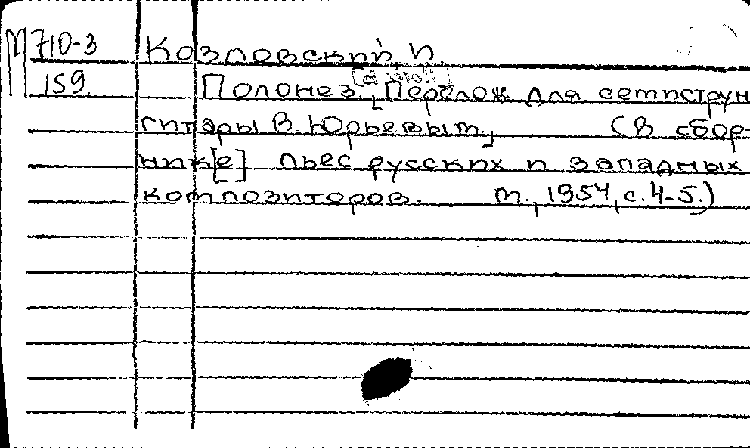 М 710-3 Козловский, И
159. Полонез. [Перелож. для семиструн
гитары В. Юрьевым.] (В сбор-
ник[е] пьес русских и западных
композиторов. М., 1954, с. 4-5.)